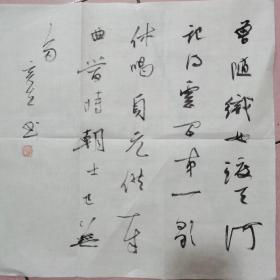 曾随织女渡天河
记得云间第一歌
休唱贞元供奉
曲当时朝士已无
多